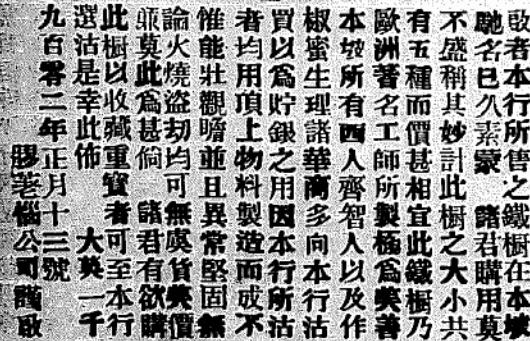 敬者本行所售之鐵橱在本坡
馳名已久素蒙　諸君購用莫
不盛稱其妙計此橱之大小共
有五種而價甚相宜此鐵橱乃
歐洲著名工師所製極爲美善
本坡所有西人齊智人以及作
椒蜜生理諸華商多向本行沽
買以爲貯銀之用因本行所沽
者均用頂上物料製造而成不
惟能壯觀瞻並且異常堅固無
論火燒盜劫均可無虞貨美價
廉莫此爲甚倘　諸君有欲購
此橱以收藏重寶者可至本行
選沽是幸此佈　大英一千
九百零二年正月十三號
膠著惱公司謹啟